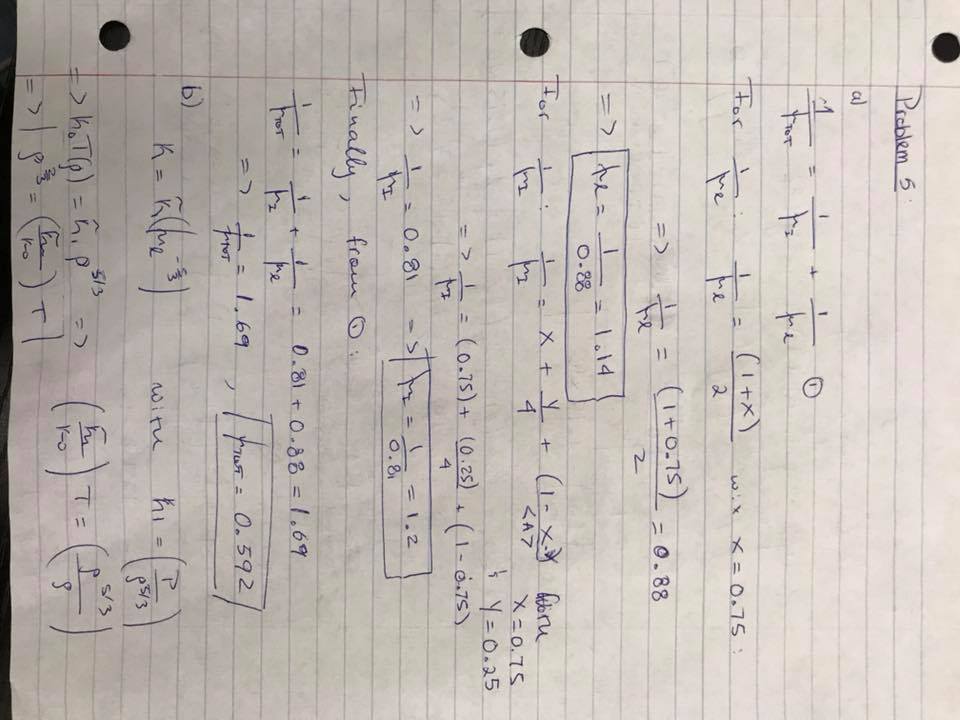 Problem 5:
a)
1/μTOT = 1/μI + 1/μe ①
For 1/μe: 1/μe = (1+X)/2 with X = 0.75:
=> 1/μe = (1+0.75)/2 = 0.88
=> μe = 1/0.88 = 1.14
For 1/μI: 1/μI = X + Y/4 + (1-X-Y)/<A> X=0.75
& Y=0.25
=> 1/μI = (0.75) + (0.25)/4 + (1-0.75)
=> 1/μI = 0.81 => μI = 1/0.81 = 1.2
Finally, from ①:
1/μTOT = 1/μI + 1/μe = 0.81 + 0.88 = 1.69
=> 1/μTOT = 1.69, μTOT = 0.592
b) K = K̃(μe^-5/3) with K1 = (P/ρ^5/3)
=> K0T(ρ) = K̃1 ρ^5/3 => (K1/K0) T = (ρ^5/3/ρ)
=> ρ^2/3 = (K1/K0) T